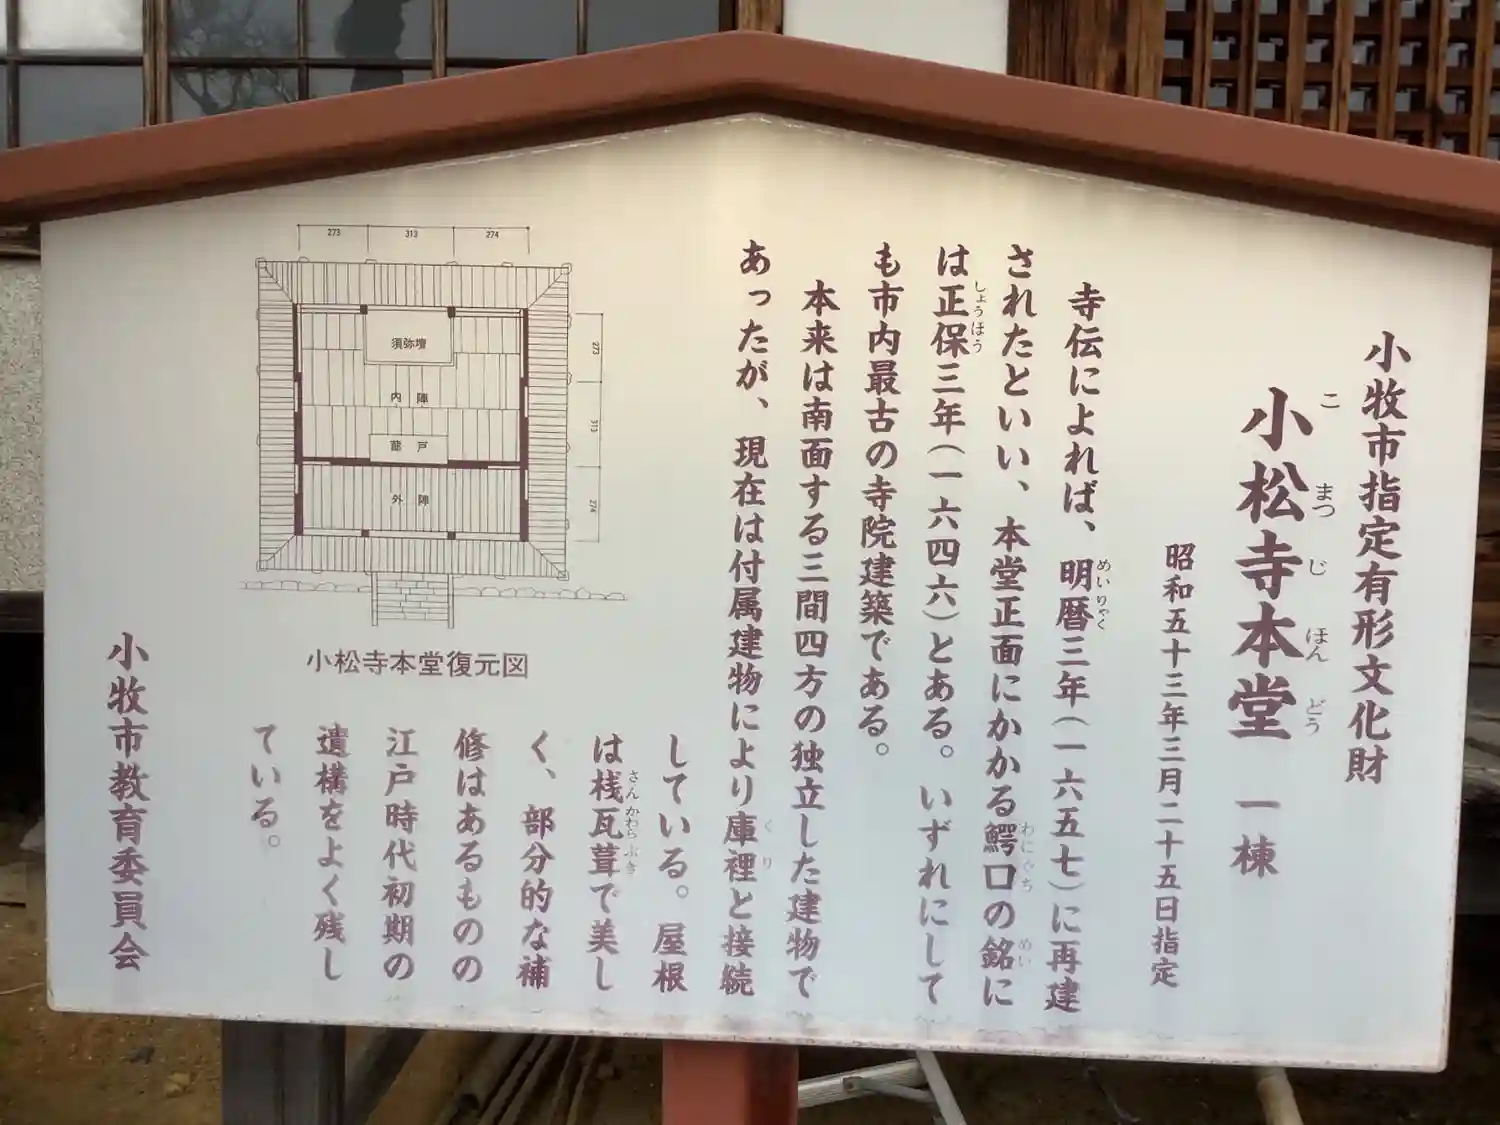 小牧市指定有形文化財
小松寺本堂 一棟
こ まつ じ ほん どう
昭和五十三年三月二十五日指定
寺伝によれば、明暦三年(一六五七)に再建
めいりゃく
されたといい、本堂正面にかかる鰐口の銘に
わにぐち めい
は正保三年(一六四六)とある。いずれにして
しょうほう
も市内最古の寺院建築である。
本来は南面する三間四方の独立した建物で
あったが、現在は付属建物により庫裡と接続
くり
している。屋根
は桟瓦葺で美し
さんかわらぶき
く、部分的な補
修はあるものの
江戸時代初期の
遺構をよく残し
ている。
273 313 274
273
313
274
須弥壇
内陣
蔀戸
外陣
小松寺本堂復元図
小牧市教育委員会